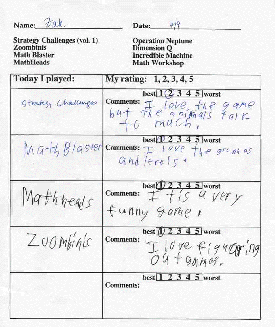 Name: Zak Date: 9/9
Strategy Challenges (vol. 1) Operation Neptune
Zoombinis Dimension Q
Math Blaster Incredible Machine
MathHeads Math Workshop
Today I played: My rating: 1, 2, 3, 4, 5
best 1 2 3 4 5 worst
Strategy Challenges Comments: I love the game
but the animals talk
to much.
best 1 2 3 4 5 worst
Math Blaster Comments: I love the
and levels.
best 1 2 3 4 5 worst
Mathheads Comments: It is a very
funny game.
best 1 2 3 4 5 worst
Zoombinis Comments:
I love figuering
out games.
best 1 2 3 4 5 worst
Comments: